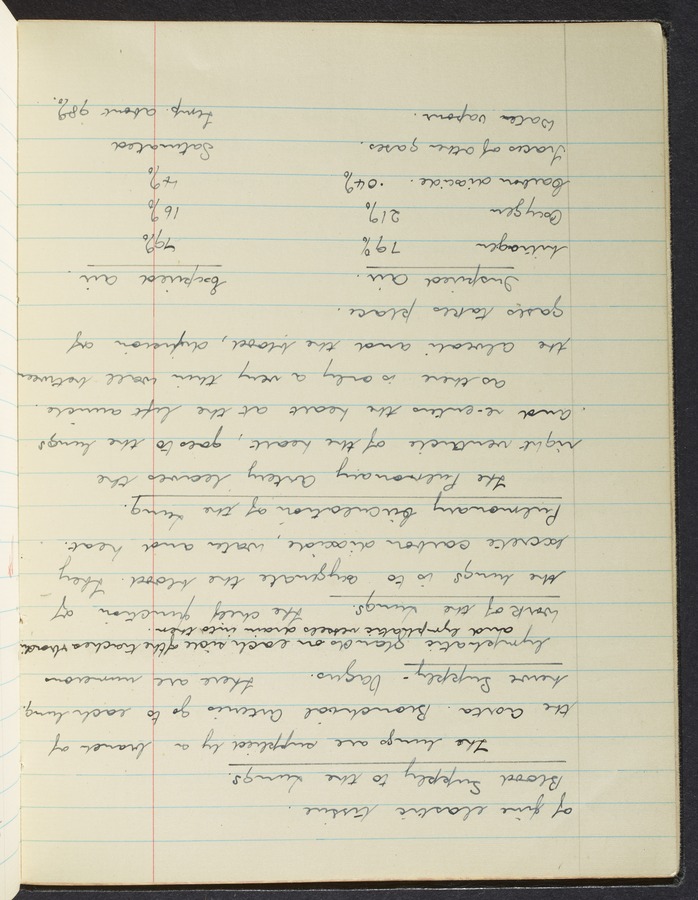 of fine elastic tissue.
Blood Supply to the Lungs.
The lungs are supplied by a branch of
the aorta. Bronchial Arteries go to each lung.
Nerve Supply - Vagus. There are numerous
lymphatic glands on each side of the trachea &
and lymphatic vessels drain into them.
Work of the Lungs. The chief function of
the lungs is to oxygenate the blood. They
excrete carbon dioxide, water and heat.
Pulmonary Circulation of the Lung.
The Pulmonary Artery leaves the
right ventricle of the heart, goes to the lungs
and re-enters the heart at the left auricle.
as there is only a very thin wall between
the alveoli and the blood, diffusion of
gases takes place.
Inspired air. Expired air.
Nitrogen 79% 79%
Oxygen 21% 16%
Carbon dioxide. .04% 4%
Traces of other gases. Saturated
Water vapour. Temp. about 98%